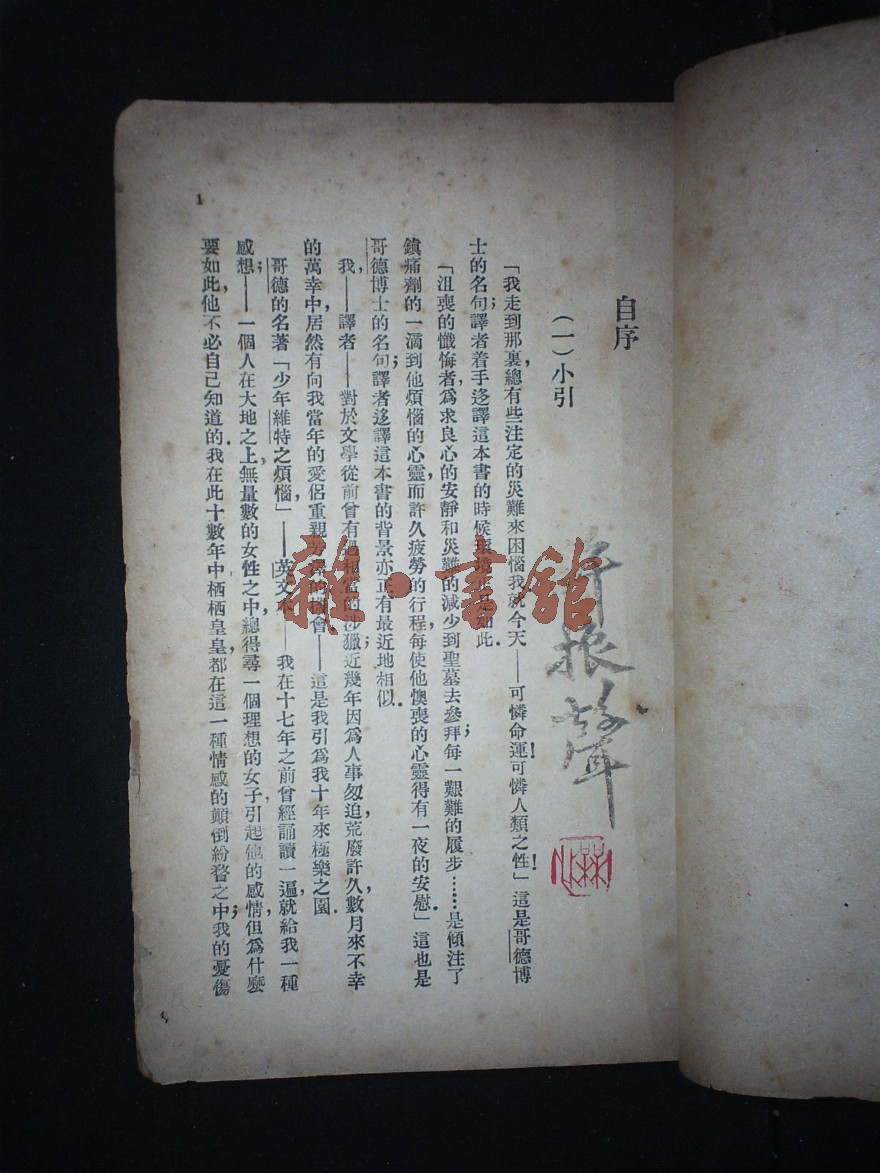 自序
(一)小引
「我走到那裏,總有些注定的災難來困惱我就今天——可憐命運!可憐人類之性!」這是哥德博
士的名句;譯者着手迻譯這本書的時候環境正是如此.
「沮喪的懺悔者,爲求良心的安靜和災難的減少到聖墓去參拜,每一艱難的履步……是傾注了
鎮痛劑的一滴到他煩惱的心靈,而許久疲勞的行程,每使他懊喪的心靈得有一夜的安慰.」這也是
哥德博士的名句;譯者迻譯這本書的背景,亦正有最近地相似.
我,——譯者——對於文學從前曾有過相當的涉獵;近幾年因爲人事匆迫,荒廢許久,數月來不幸
的萬幸中,居然有向我當年的愛侶重親芳澤的機會——這是我引爲我十年來極樂之園.
哥德的名著「少年維特之煩惱,」——英文本——我在十七年之前曾經誦讀一遍,就給我一種
感想;——一個人在大地之上,無量數的女性之中,總得尋一個理想的女子,引起他的感情,但爲什麼
要如此,他不必自己知道的.我在此十數年中栖栖皇皇,都在這一種情感的顛倒紛瞀之中;我的憂傷
1
許振聲
雜·書館